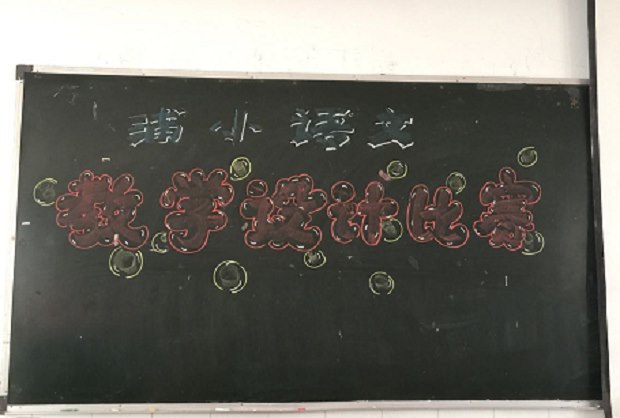 浦小语文
教学设计比赛